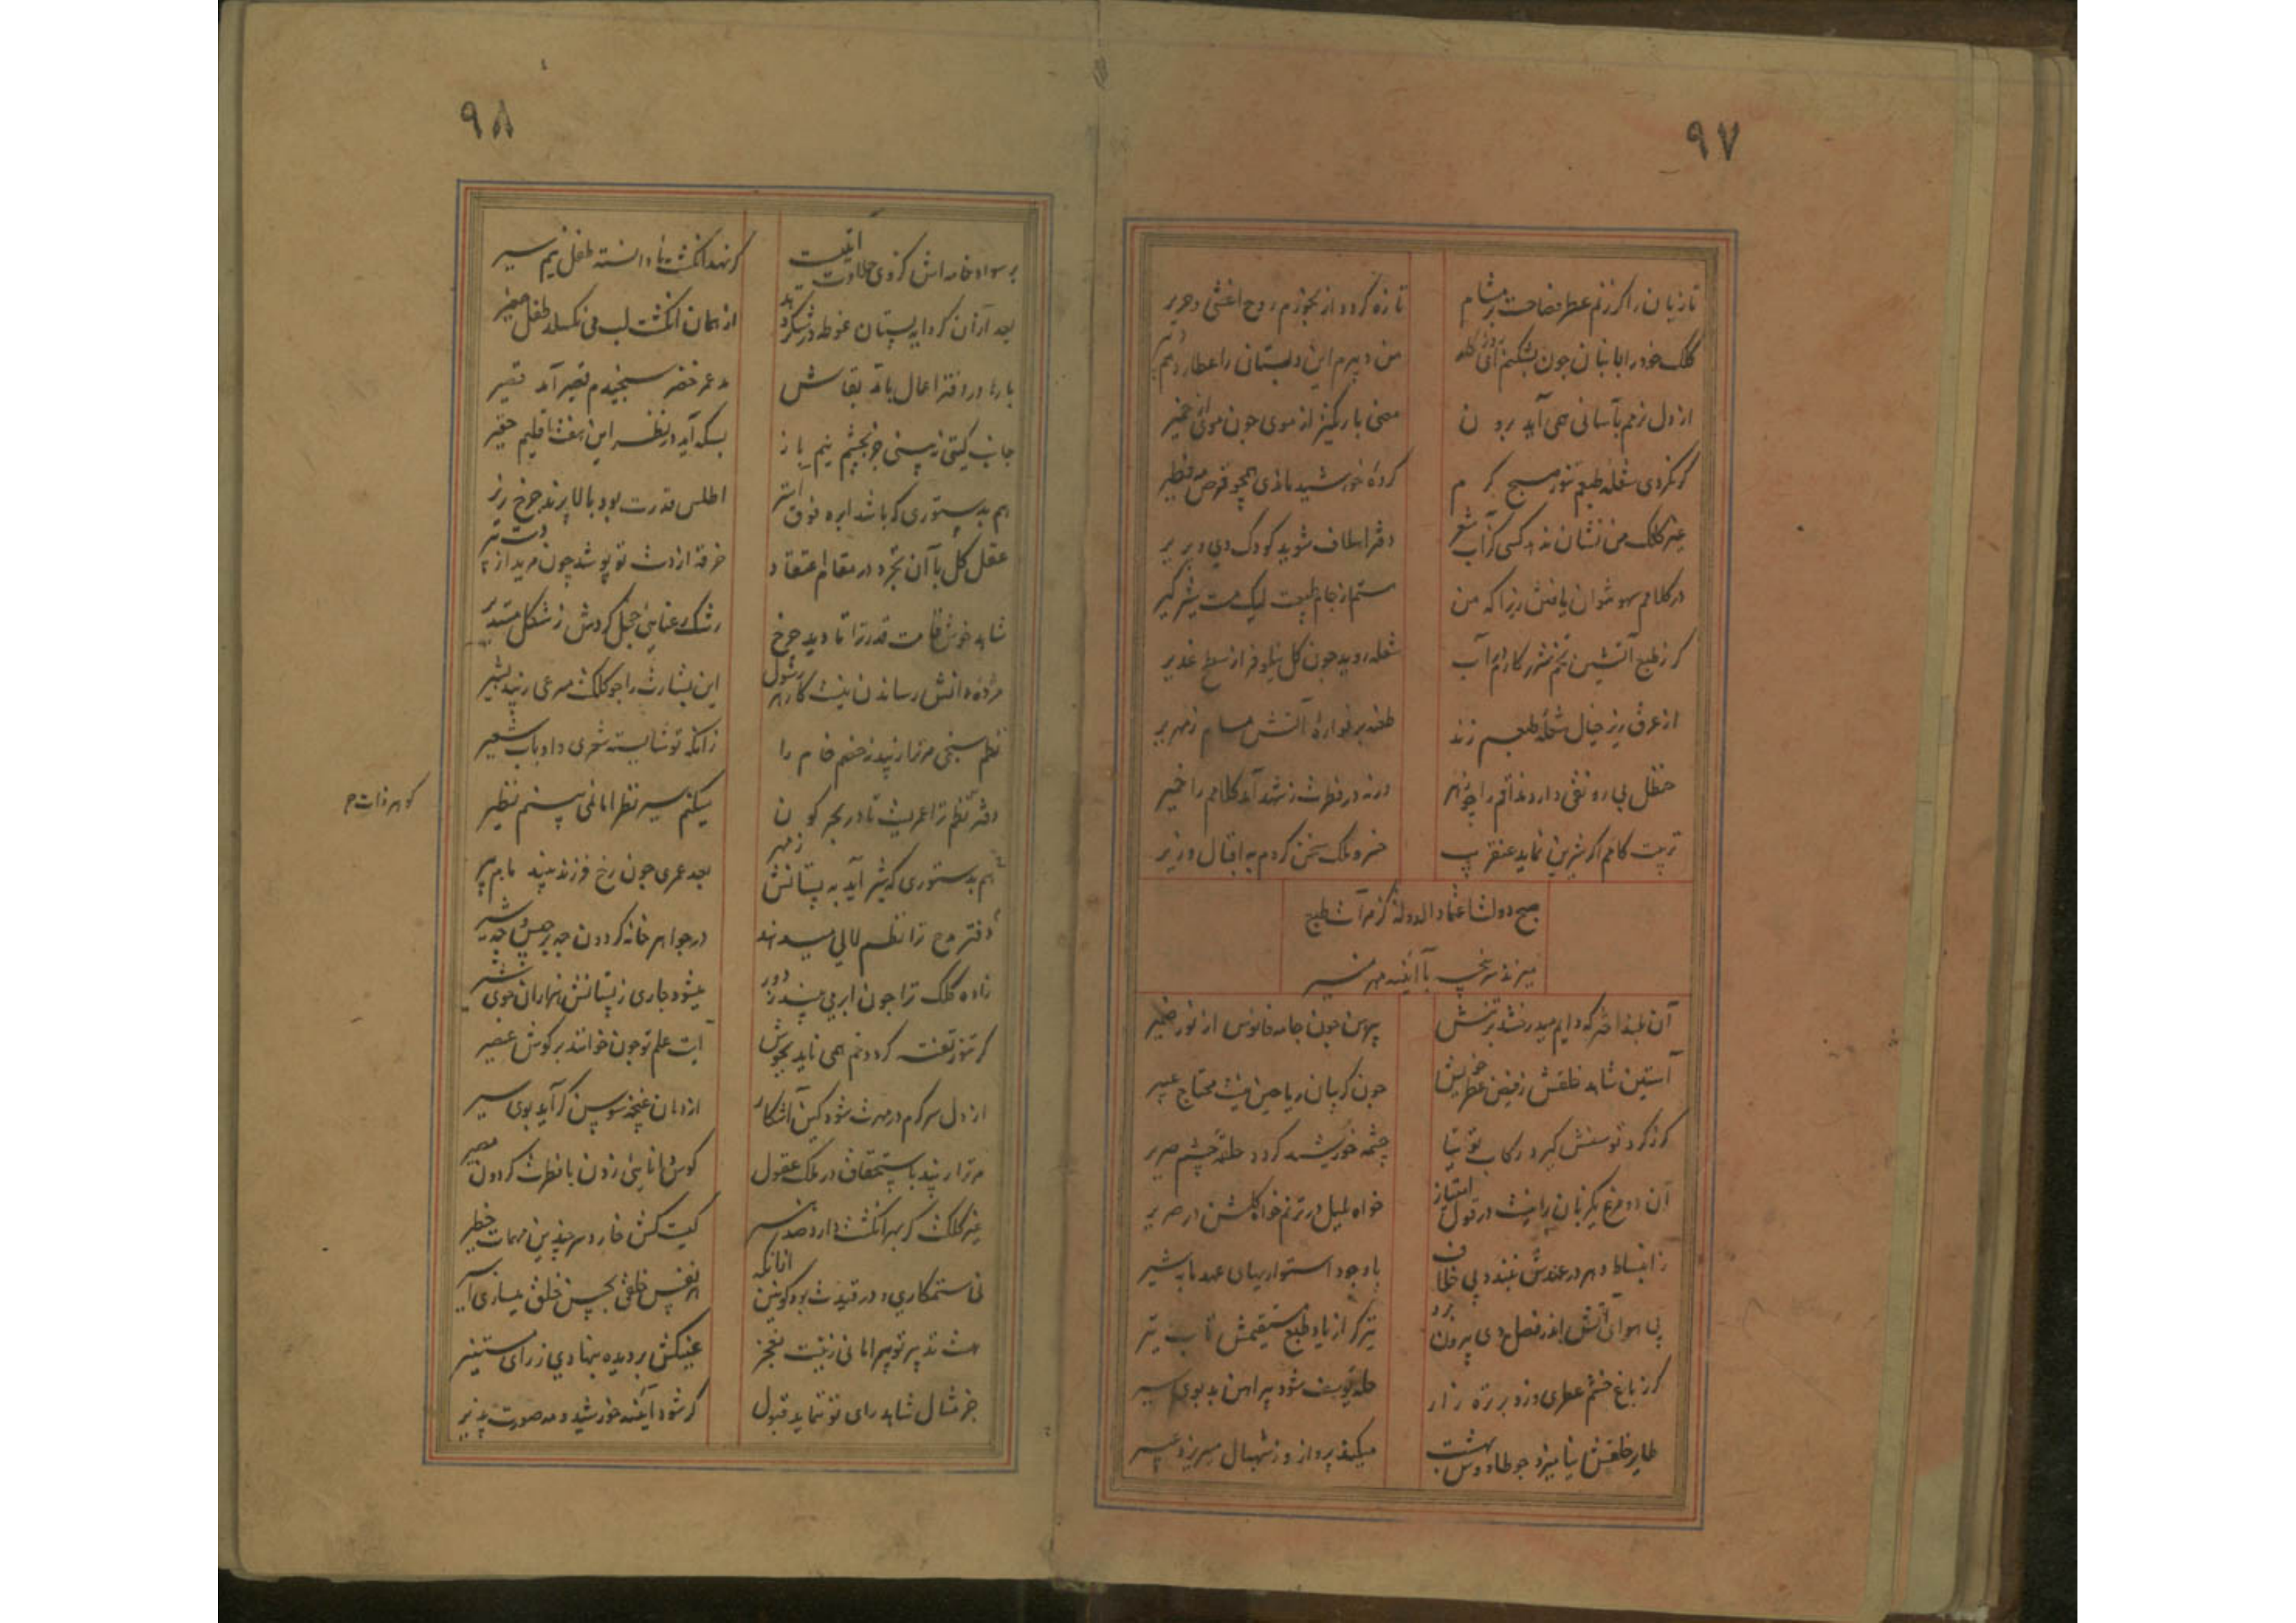 ۹۷
تازبان را کرزنم عطر فصاحت بر مشام
تازه کردد از بخورم روح اعشی و جریر
کلک خود را با بنان چون بشکنم
من دبیرم این دبستان را عطارد هم دبیر
از دل نرمم بآسانی همی آید برون
معنی باریکتر از موی چون موی از خمیر
کر نکردی شعله طبعم تنور صبح کرم
کردهٔ خورشید ماندی همچو قرص فطیر
غیر کلک من نشان ندهد کسی کز آب شعر
دفتر الطاف شوید کودک دی و بر پیر
در کلامم سهو نتوان یافتن زیرا که من
مستم از جام طبیعت لیک مست شیرکیر
کر ز طبع آتشین تخم شرر کارم در آب
شعله روید چون کل نیلوفر از سطح غدیر
از عرق ریز خیال شعله طبعم زند
طعنه بر فوارهٔ آتش مسام زمهریر
حنظل بی رونقی دارد مذاقم را چو زهر
ورنه در فطرت ز شهد آمد کلامم را خمیر
تربیت کامم اکر شیرین نماید عنقریب
خسرو ملک سخن کردم به اقبال وزیر
صبح دولت اعتماد الدوله کز مرآت طبع
میزند سرپنجه با آئینه مهر منیر
آن بلند اختر که دایم میدرخشد بر تنش
پیرهن چون جامه فانوس از نور ضمیر
آستین شاهد خلقش ز فیض عطر خویش
چون کریبان ریاحین نیست محتاج عبیر
کر ز کرد توسنش کیرد رکابی توتیا
چشمه خورشید کردد حلقه چشم ضریر
آن دو مرغ یکزبان را نیست در قول امتیاز
خواه بلبل در ترنم خواه کلشن در صریر
ز انبساط دهر در عهدش نبندد بی خلاف
باوجود استواریهای عهد مابه شیر
بی هوای آتش اندر فصل دی بیرون برد
تیر کر از یاد طبع مستقیمش تاب تیر
کر ز باغ خشم عطری وزد بر تره زار
حله یوسف شود پیراهن بد بوی سیر
طایر خلقش نیامیزد چو طاووس بهشت
میکند پرواز و ز شهبال میریزد عبیر
۹۸
بر سواد خامه اش کز وی حلاوت آیتیست
کر نهد انکشت نادانسته طفل نیم سیر
بعد ازآن کر دایه پستان غوطه در شکر دهد
از همان انکشت لب می نکسلد طفل صغیر
بارها در دفتر اعمال با مد بقاش
مد عمر خضر سنجیدم قصیر آمد قصیر
جانب کیتی نه بینی جز بچشم نیم باز
بسکه آید در نظر این هفت اقلیم حقیر
هم بدستوری که باشد ابره فوق استر
اطلس قدرت بود بالا پرند چرخ زیر
عقل کل با آن تجرد در مقام اعتقاد
خرقه از دست تو پوشد چون مرید از دست پیر
شاهد خوش قامت قدر ترا تا دید چرخ
رشک رعنایی خجل کردش ز شکل مستدیر
مژده دانش رساندن نیست کار هر رسول
این بشارت را چو کلکت مسرعی زیبد بشیر
نظم سنجی مر ترا زیبد نه خصم خام را
زانکه تو شایسته شعری و او باب شعیر
دفتر نظم ترا عمریست تا در بحر کون
میکنم سیر نظر اما نمی بینم نظیر
هم بدستوری که شیر آید به پستانش ز مهر
بعد عمری چون رخ فرزند بیند مام پیر
دفتر مدح ترا نظم لالی میدهد
در جواهر خانه کردون چه برجیس و چه تیر
زاده کلک ترا چون ابر می بیند ز دور
میشود جاری ز پستانش هزاران جوی شیر
کر تنور تفته کردد نم همی ناید بجوش
آیت علم تو چون خوانند بر کوش عصیر
از دل سرکرم در مهرت شود کین آشکار
از دهان غنچه سوسن کر آید بوی سیر
مر ترا زیبد باستحقاق در ملک عقول
کوس دانایی زدن با فطرت کردون مصیر
غیر کلکت کر بهر انکشت دارد صد هنر
کیست کش خارد سر چندین مهمات خطیر
نی ستمکاری و در قیدت بود کونین از آنکه
هم نفس خلقی بحسن خلق میسازی اسیر
هست تدبیر تو پیر اما نی زینت معجز
عینکش بر دیده بنهادی ز رای مستنیر
جز مثال شاهد رای تو ننماید قبول
کر شود آئینه خورشید و مه صورت پذیر
کوهر ذات